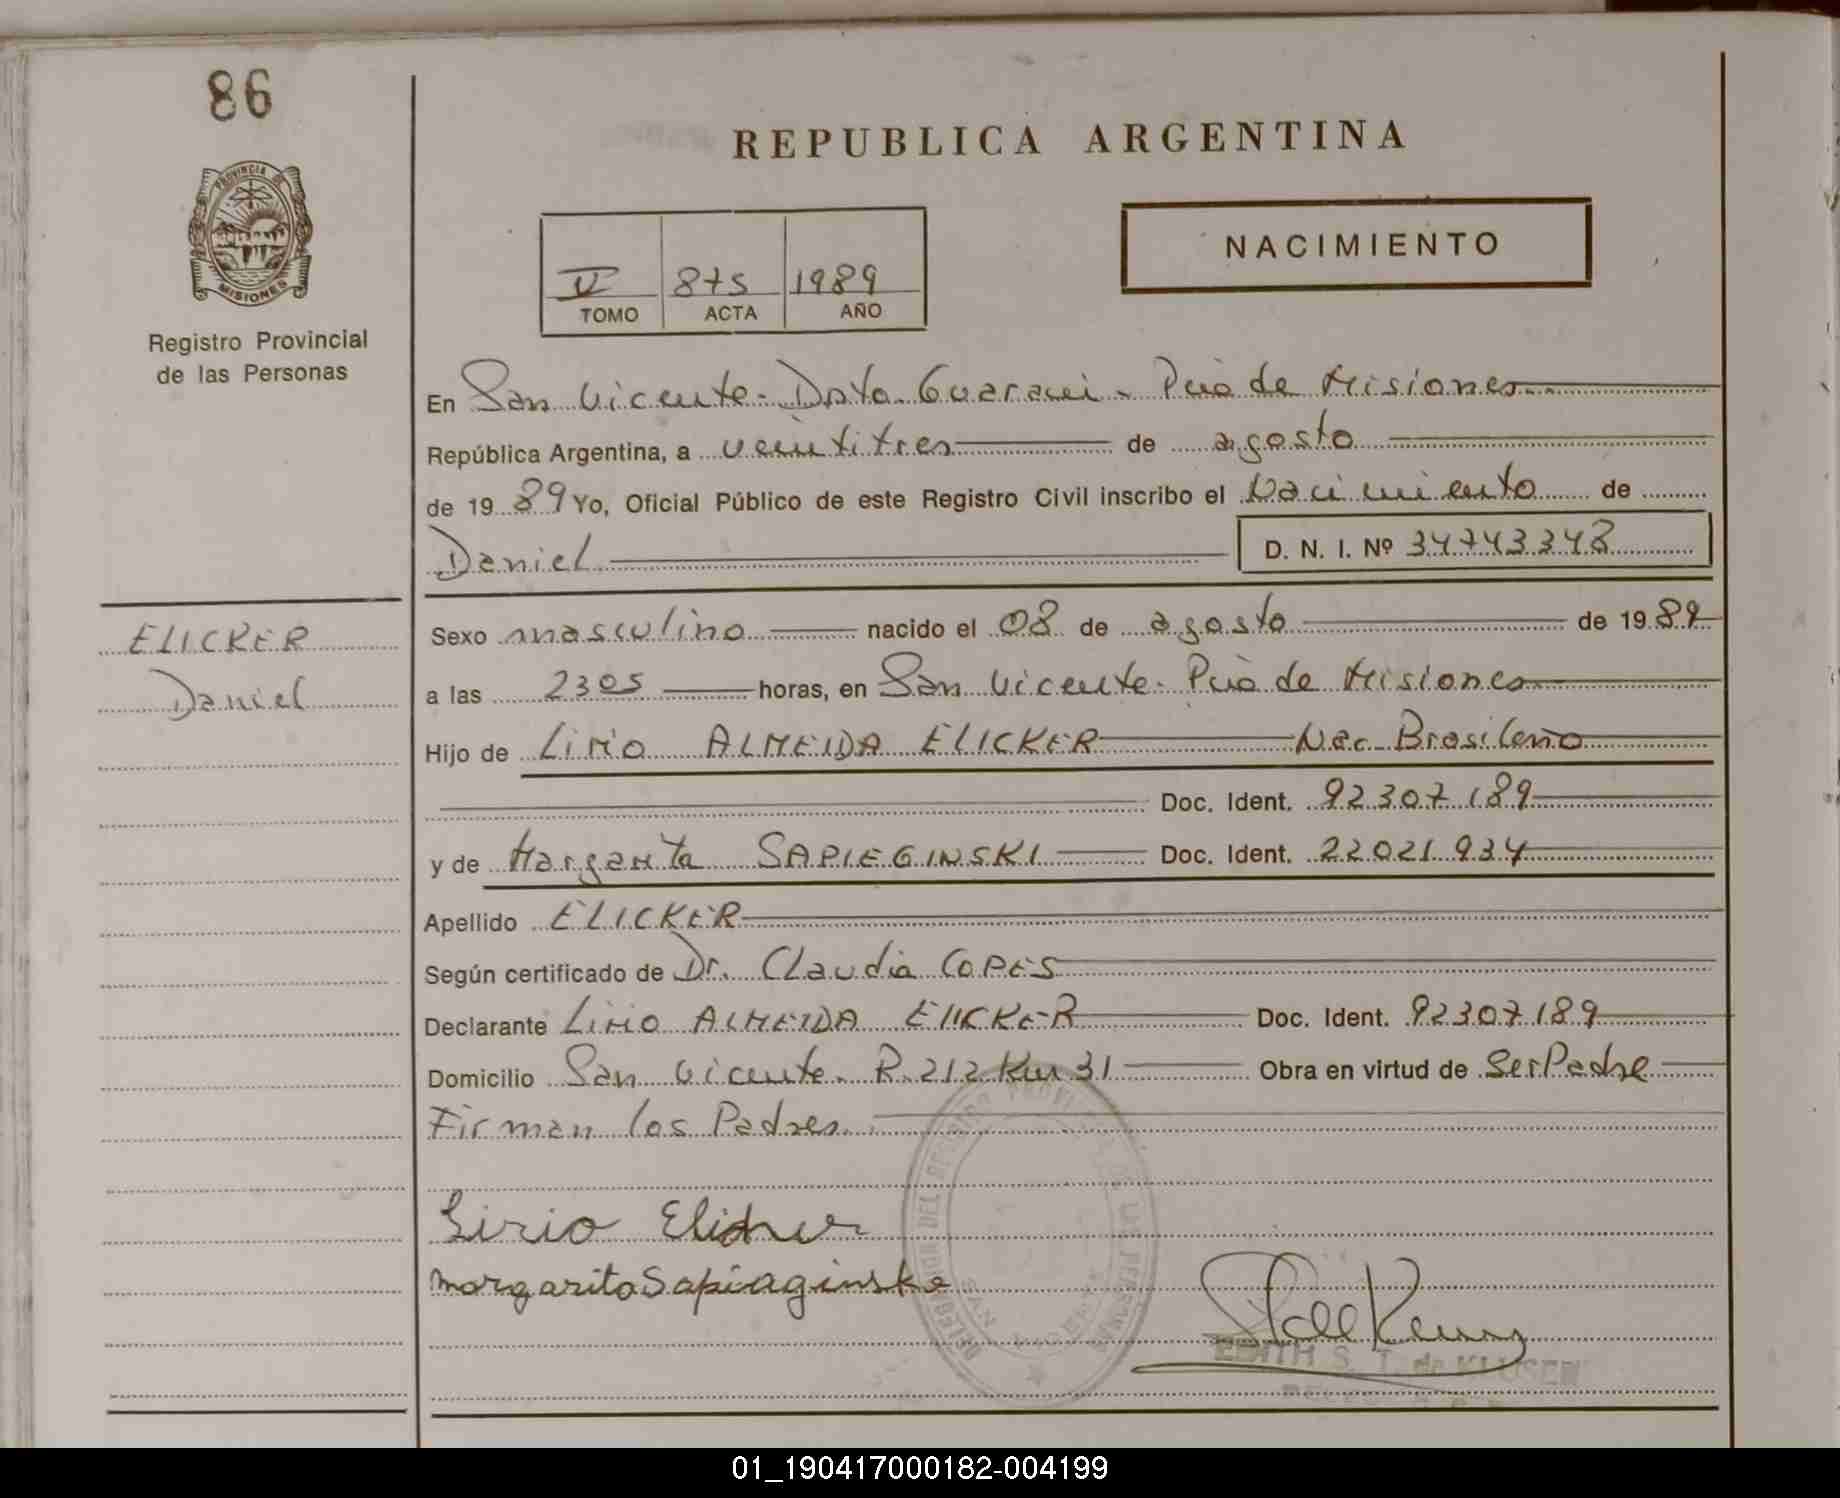 86
REPUBLICA ARGENTINA
PROVINCIA DE
MISIONES
NACIMIENTO
V 875 1989
TOMO ACTA AÑO
Registro Provincial
de las Personas
En San Vicente - Dpto. Guarani - Pcia de Misiones
República Argentina, a veintitres de agosto
de 19 89 Yo, Oficial Público de este Registro Civil inscribo el Nacimiento de
Daniel D. N. I. Nº 34743348
ELICKER
Daniel
Sexo masculino nacido el 08 de agosto de 19 89
a las 2305 horas, en San Vicente - Pcia de Misiones
Hijo de LiRiO ALMEIDA ELICKER Nac. Brasileño
Doc. Ident. 92307189
y de Margarita SAPIEGINSKI Doc. Ident. 22021934
Apellido ELICKER
Según certificado de Dr. Claudia COPES
Declarante LiRiO ALMEIDA ELICKER Doc. Ident. 92307189
Domicilio San Vicente - R. 212 Km 31 Obra en virtud de Ser Padre
Firman los Padres
Lirio Elicker
margarita Sapiaginske
SAN VICENTE
EDITH S. T. de KLUSEN
01_190417000182-004199